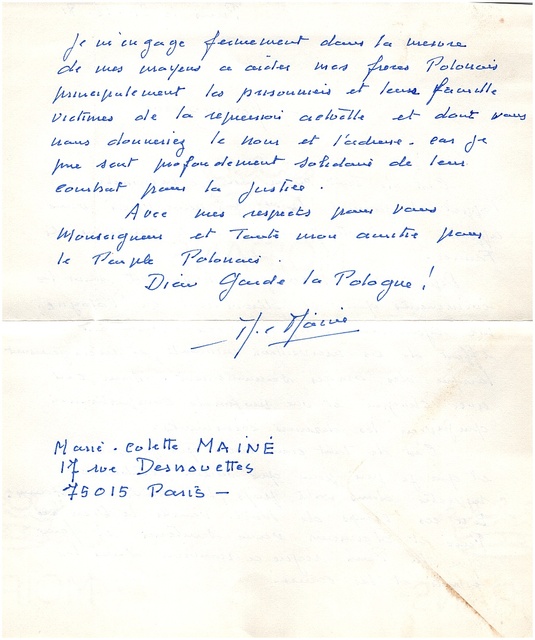 Je m'engage fermement dans la mesure
de mes moyens a aider mes freres Polonais
principalement les prisonniers et leurs famille
victimes de la repression actuelle et dont vous
nous donneriez le nom et l'adresse. car je
me sent profondement solidaire de leur
combat pour la justice.
Avec mes respects pour vous
Monseigneur et toute mon amitié pour
le Peuple Polonais.
Dieu Garde la Pologne!
M.C Mainé
Marie-Colette MAINÉ
17 rue Desnouettes
75015 Paris –